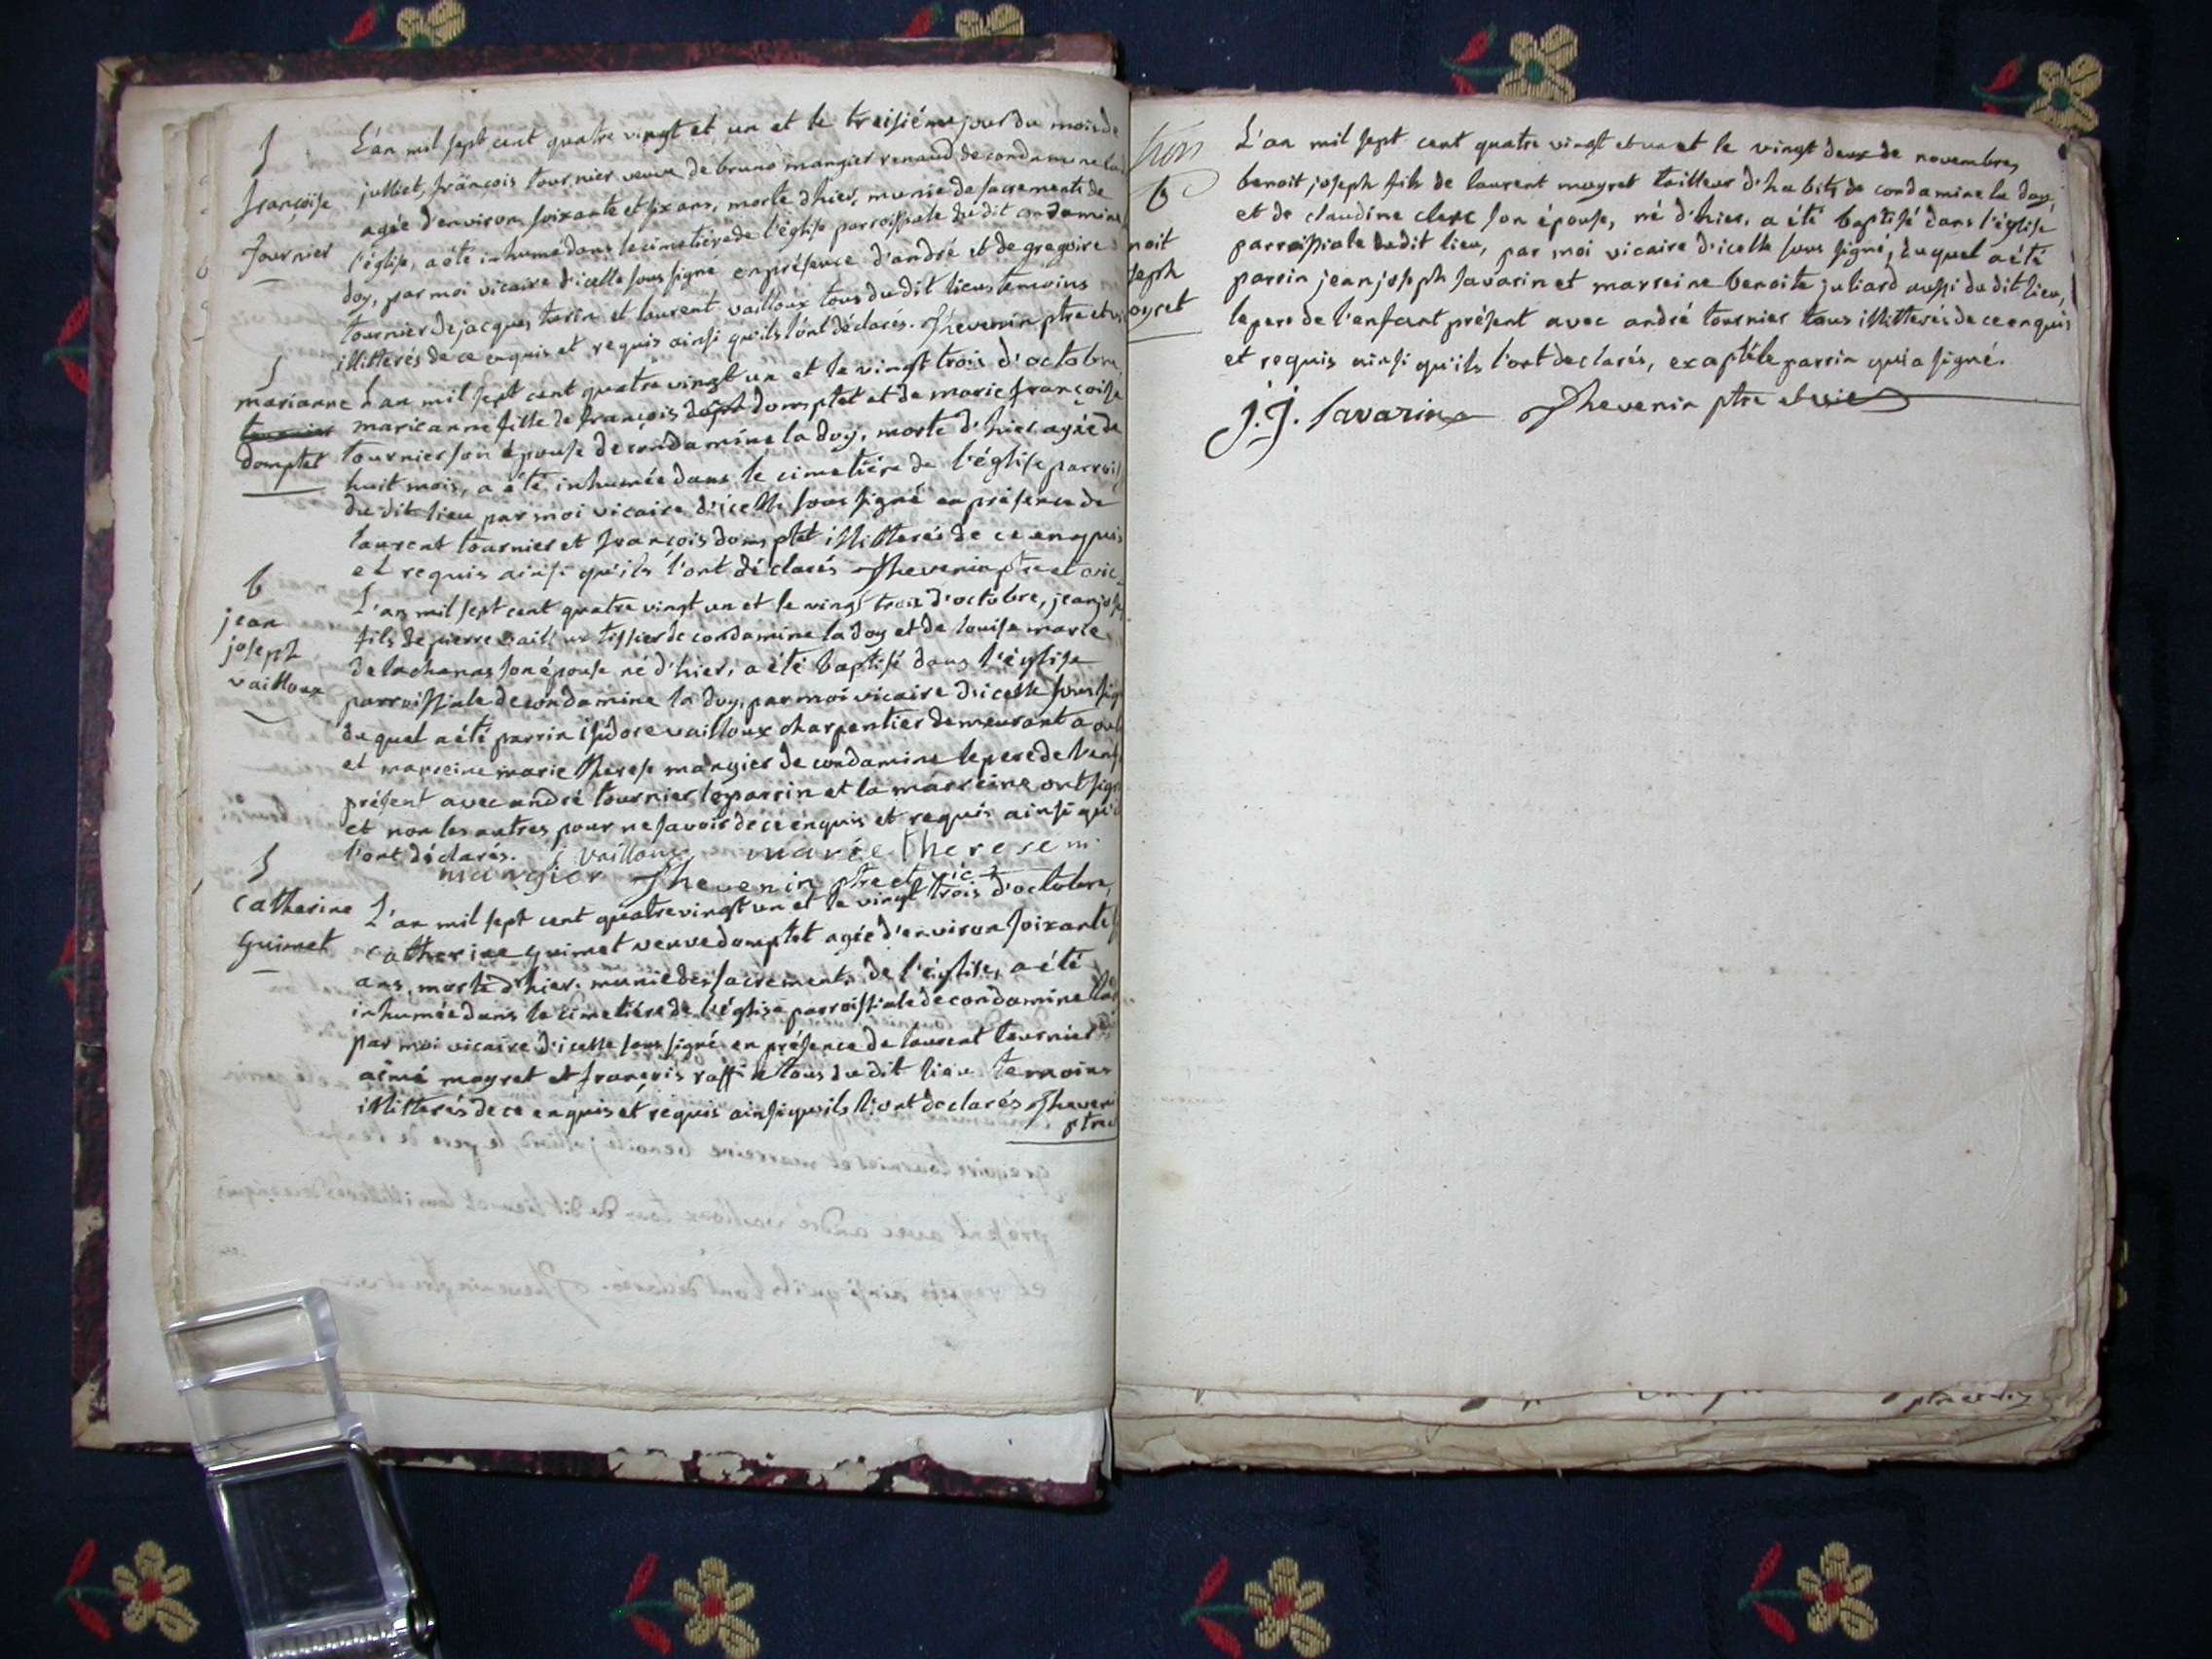 S
françoise
Tournier
L'an mil sept cent quatre vingt et un et le treisiéme jour du mois de
julliet, françois tournier veuve de bruno mangier renaud de condamine la
agée d'environ soixante et six ans, morte d'hier, munie de sacrements de
l'église, a été inhumé dans le cimetiére de l'église parroissiale du dit condamine
doy, par moi vicaire d'icelle sous signé en présence d'andré et de gregoire
tournier de jacques turin et laurent vailloux tous du dit lieu temoins
illitterés de ce enquis et requis ainsi qu'ils l'ont déclarés. Thevenin ptre et vi
S
marianne
domptet
L'an mil sept cent quatre vingt un et le vingt trois d'octobre
marieanne fille de françois domptet et de marie françoise
tournier son épouse de condamine la doy, morte d'hier agée de
huit mois, a été inhumée dans le cimetiére de l'église parrois
du dit lieu par moi vicaire d'icelle sous signé en présence de
laurent tournier et françois domptet illitterés de ce enquis
et requis ainsi qu'ils l'ont déclarés Thevenin ptre et vic
b
jean
joseph
vailloux
L'an mil sept cent quatre vingt un et le vingt trois d'octobre, jean jos
fils de pierre vailloux tissier de condamine la doy et de louise marie
delachanas son épouse né d'hier, a été baptisé dans l'église
parroissiale de condamine la doy, par moi vicaire d'icelle sous sig
duquel a été parrin isidore vailloux charpentier demeurant a
et marreine marie therese mangier de condamine le pere de l'enf
présent avec andré tournier le parrin et la marreine ont sig
et non les autres pour ne savoir de ce enquis et requis ainsi qu'i
l'ont déclarés. i vailloux marie therese m
mangier Thevenin ptre et vic
S
Catherine
guimet
L'an mil sept cent quatre vingt un et le vingt trois d'octobre,
catherine guimet veuve domptet agée d'environ soixante
ans, morte d'hier. munie des sacrements de l'église, a été
inhumée dans le cimetiére de l'église parroissiale de condamine la
par moi vicaire d'icelle sous signé en présence de laurent tournier
aimé moyret et françois raffin tous du dit lieu temoins
illitterés de ce enquis et requis ainsi qu'ils l'ont declarés Theveni
ptre
b
noit
seph
oyret
L'an mil sept cent quatre vingt et un et le vingt deux de novembre,
benoit joseph fils de laurent moyret tailleur d'habits de condamine la doy,
et de claudine clerc son épouse, né d'hier, a été baptisé dans l'église
parroissiale du dit lieu, par moi vicaire d'icelle sous signé, duquel a été
parrin jean joseph savarin et marreine benoite juliard aussi du dit lieu,
le pere de l'enfant présent avec andré tournier tous illitterés de ce enquis
et requis ainsi qu'ils l'ont declarés, exapté le parrin qui a signé.
J.J. Savarin Thevenin ptre et vic
ptre et vic